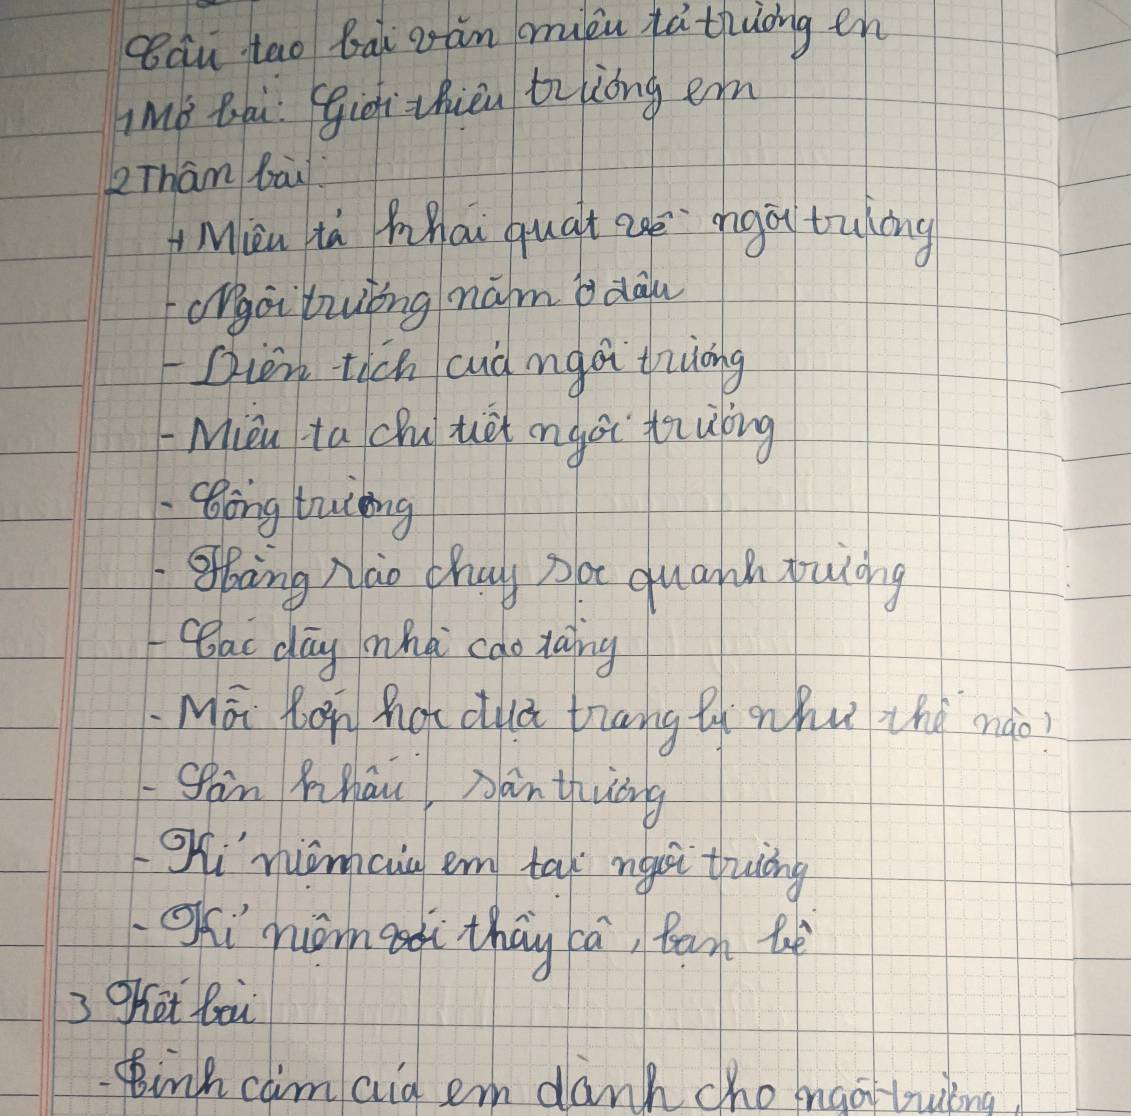 Cấu tạo bài văn miêu tả trường en
1 Mở bài: Giới thiệu trường em
2 Thân bài:
+ Miêu tả khái quát về ngôi trường
- Ngôi trường nằm ở đâu
- Diện tích của ngôi trường
- Miêu ta chi tiết ngôi trường
- Cổng trường
- Hàng rào chạy dọc quanh trường
- Các dãy nhà cao tầng
- Mỗi lớp học được trang bị như thế nào?
- Sân khấu, sân trường
- Kỉ niệm của em tại ngôi trường
- Kỉ niệm với thầy cô, bạn bè
3 Kết bài
- Tình cảm của em dành cho ngôi trường.